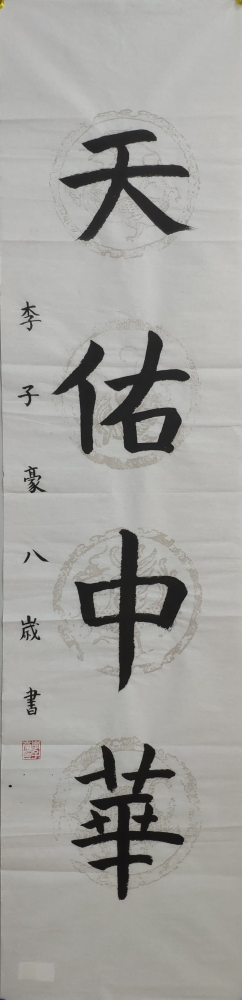 天佑中華
李子豪八歲書